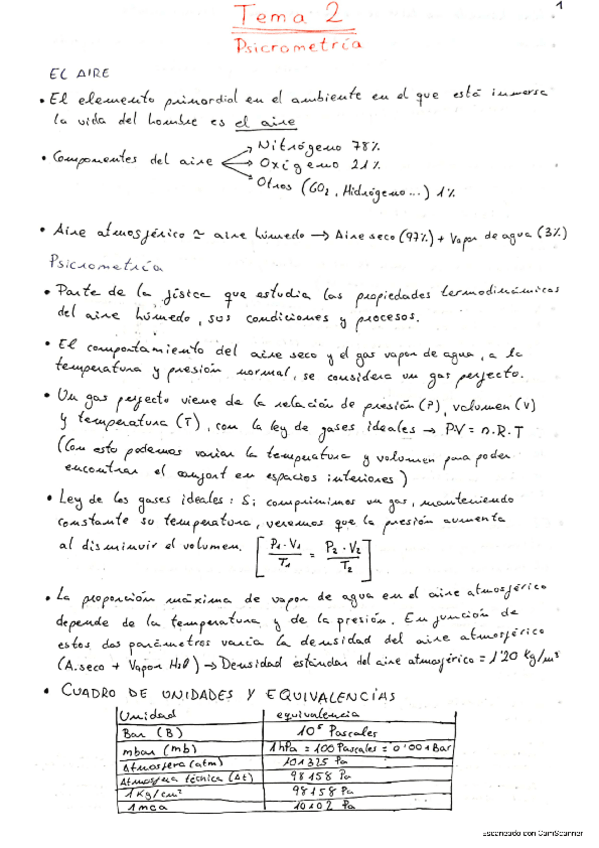 1
Tema 2
Psicrometría
EL AIRE
• El elemento primordial en el ambiente en el que está inmersa
la vida del hombre es el aire
• Componentes del aire → Nitrógeno 78%
→ Oxígeno 21%
→ Otros (CO2, Hidrógeno...) 1%
• Aire atmosférico ≃ aire húmedo → Aire seco (97%) + Vapor de agua (3%)
Psicrometría
• Parte de la física que estudia las propiedades termodinámicas
del aire húmedo, sus condiciones y procesos.
• El comportamiento del aire seco y el gas vapor de agua, a la
temperatura y presión normal, se considera un gas perfecto.
• Un gas perfecto viene de la relación de presión (P), volumen (V)
y temperatura (T), con la ley de gases ideales → P.V = n.R.T
(Con esto podemos variar la temperatura y volumen para poder
encontrar el confort en espacios interiores)
• Ley de los gases ideales: Si comprimimos un gas, manteniendo
constante su temperatura, veremos que la presión aumenta
al disminuir el volumen. [P1·V1/T1 = P2·V2/T2]
• La proporción máxima de vapor de agua en el aire atmosférico
depende de la temperatura y de la presión. En función de
estos dos parámetros varía la densidad del aire atmosférico
(A.seco + Vapor H2O) → Densidad estándar del aire atmosférico = 1'20 Kg/m³
• CUADRO DE UNIDADES Y EQUIVALENCIAS
Unidad equivalencia
Bar (B) 10⁵ Pascales
mbar (mb) 1 hPa = 100 Pascales = 0'001 Bar
Atmósfera (atm) 101325 Pa
Atmósfera técnica (At) 98158 Pa
1 Kg/cm² 98158 Pa
1 mca 10102 Pa
Escaneado con CamScanner